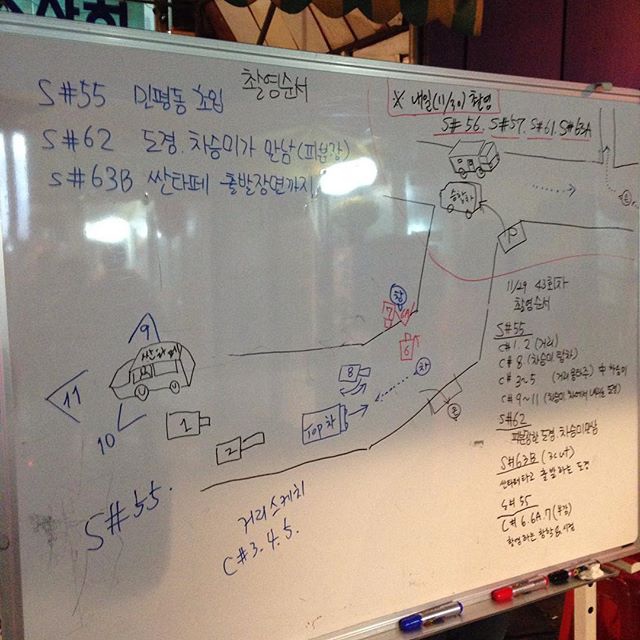 촬영순서
S#55 민평동 초입
S#62 도경. 차승미가 만남(피분장)
S#63B 싼타페 출발장면까지.
※ 내일(11/30) 촬영
S#56. S#57. S#61. S#63A
승합차
P
창
7
6A
6
차
8
Top차
싼타페
9
11
10
1
2
S#55.
거리스케치
C#3.4.5.
11/29 43회차
촬영순서
S#55
C#1.2 (거리)
C#8 (차승미
C#3~5
C#9~11 (차승미 차에서 내리는 도경)
S#62
피분장한 도경. 차승미만남
S#63B (3cut)
싼타페타고 출발하는 도경
S#55
C#6.6A.7 (부감)